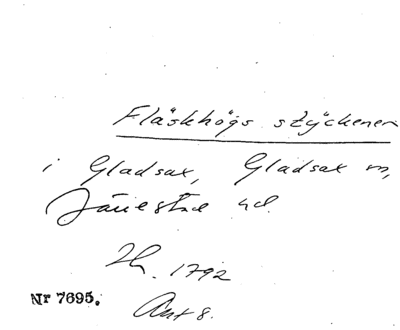 Fläskhögs styckenen
i Gladsax, Gladsax sn,
Järrestad hd.
Ih. 1792
Akt 8.
Nr 7695.